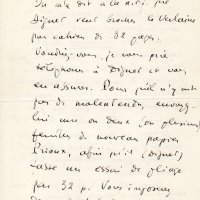 On a dit à la n.r.f. que
Dignet veut brocher le Verlaine
par cahiers de 32 pages.
Voudriez-vous, je vous prie
téléphoner à Dignet et vous
en assurer. Pour qu'il n'y ait
pas de malentendu, envoyez-
lui une ou deux (ou plusieurs)
feuilles du nouveau papier
Prioux, afin qu'il (Dignet)
fasse un essai de pliage
par 32 p. Vous